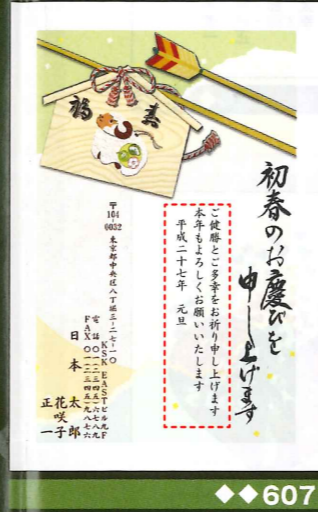 初春のお慶びを
申し上げます
ご健勝とご多幸をお祈り申し上げます
本年もよろしくお願いいたします
平成二十七年　元旦
〒104-0032 東京都中央区八丁堀三-二七-一〇
KSK EASTビル九F
電話〇一二三四五六七八九
FAX〇一二三四五九八七六
日本 太郎
花咲子
正一
◆◆607